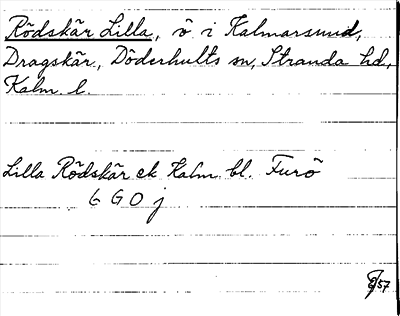 Rödskär Lilla, ö i Kalmarsund,
Dragskär, Döderhults sn, Stranda hd,
Kalm. l.
Lilla Rödskär ek Kalm bl. Furö
6 G 0 j
/57